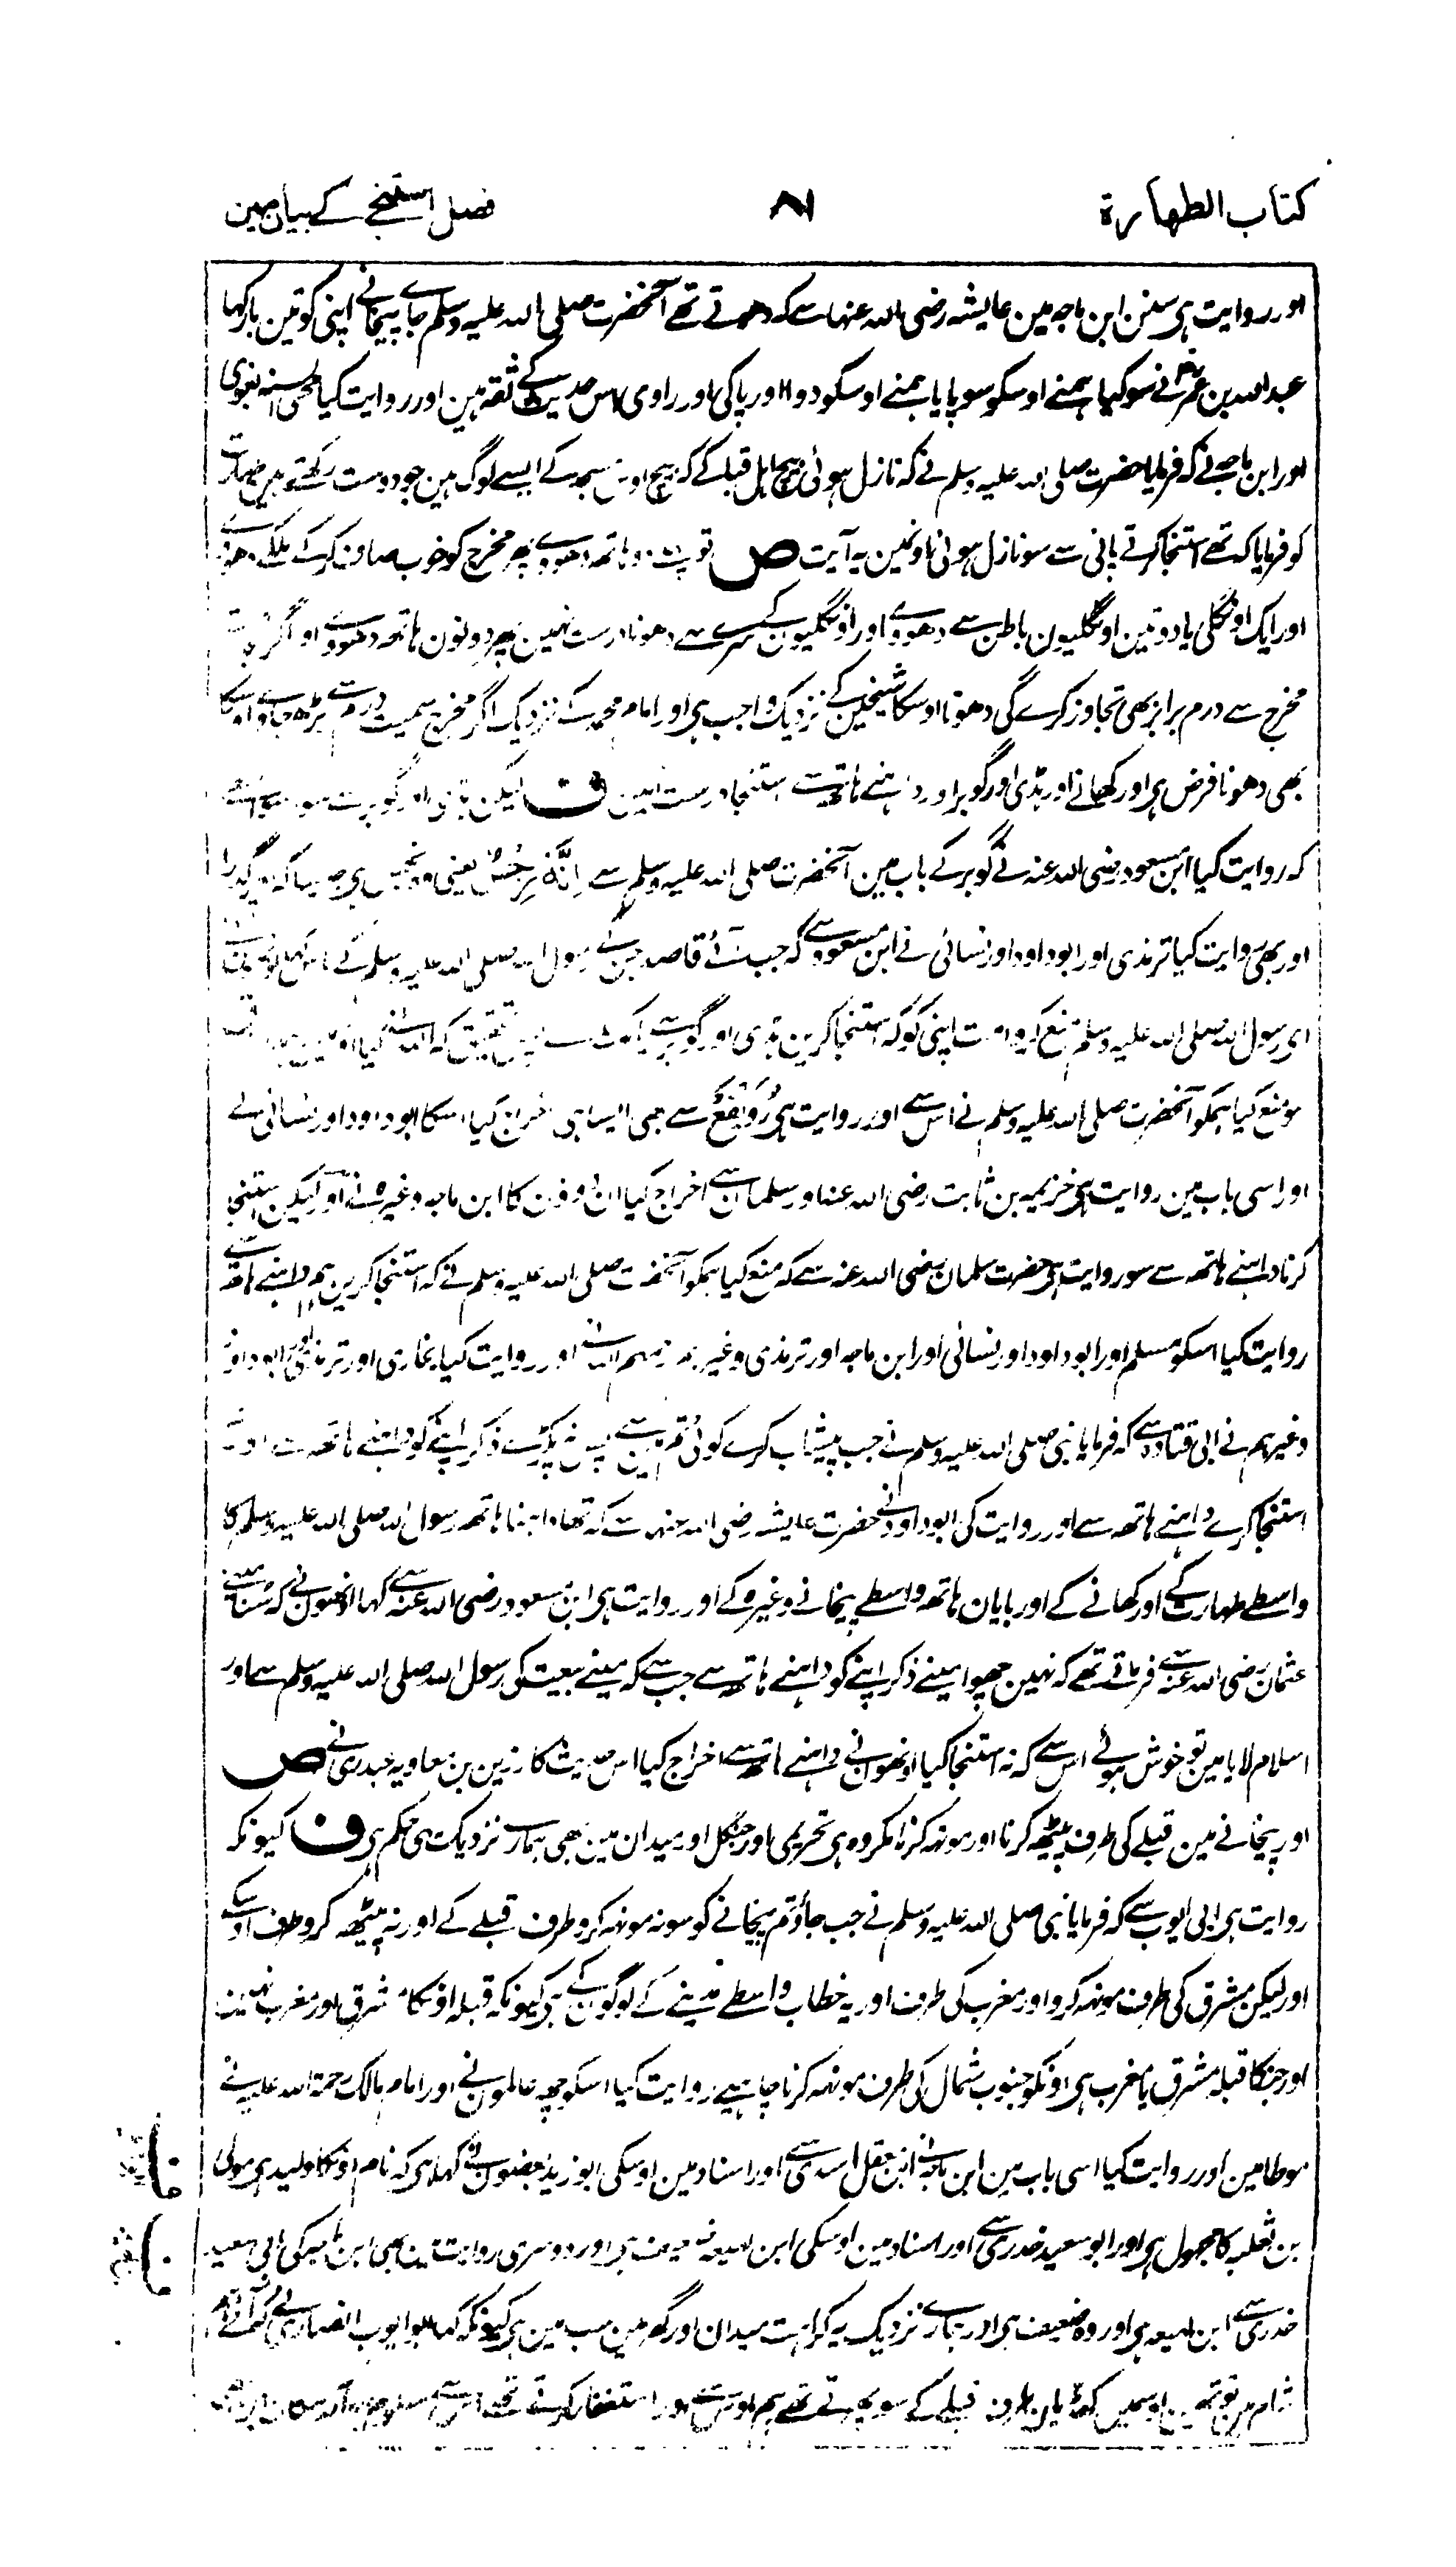 کتاب الطهارة ۸۱ فصل استنجے کے بیان مین
اور روایت ہی سنن ابن ماجہ مین عایشہ رضی اللہ عنہا سے کہ دھوتے تھے آنحضرت صلی اللہ علیہ وسلم جاے پیخانے اپنی کو تین بار کہا
عبد اللہ بن عمر نے سو کیا ہمنے اوسکو سو پایا ہمنے اوسکو دوا اور پاکی اور راوی اس حدیث کے ثقہ ہین اور روایت کیا محی السنہ بغوی
اور ابن ماجہ نے کہ فرمایا حضرت صلی اللہ علیہ وسلم نے کہ نازل ہوئی بیچ اہل قبلہ کے کہ بیچ اوس مسجد کے ایسے لوگ ہین جو دوست رکھتے ہین طہارت
کو فرمایا کہ تھے استنجا کرتے پانی سے سو نازل ہوئی اونمین یہ آیت ص تو ہاتھ دھووے پھر مخرج کو خوب صاف کرکے دھووے
اور ایک اونگلی یا دو تین اونگلیون باطن سے دھووے اور اونگلیون کے سرے سے دھونا درست نہین پھر دونون ہاتھ دھووے اور اگر
مخرج سے درم برابر بھی تجاوز کرے گی دھونا اوسکا شیخین کے نزدیک واجب ہی اور امام محمد کے نزدیک اگر مخرج سمیت درم سے بڑھ جاوے اوسکا
بھی دھونا فرض ہی اور کھانے اور ہڈی اور گوبر اور داہنے ہاتھ سے استنجا درست نہین ف لیکن ہڈی اور گوبر سے سو
کہ روایت کیا ابن مسعود رضی اللہ عنہ نے گوبر کے باب مین آنحضرت صلی اللہ علیہ وسلم سے اِنَّہٗ رِجْسٌ یعنی وہ نجس ہی جیسا کہ گذرا
اور بھی روایت کیا ترمذی اور ابو داود اور نسائی نے ابن مسعود سے کہ جب آئے قاصد جن کے رسول اللہ صلی اللہ علیہ وسلم کے
ای رسول اللہ صلی اللہ علیہ وسلم منع کرو امت اپنی کو کہ استنجا کرین ہڈی اور گوبر سے تحقیق کہ اللہ نے کیا
سو منع کیا ہمکو آنحضرت صلی اللہ علیہ وسلم نے اس سے اور روایت ہی رُوَیْفِع سے بھی ایسا ہی اخراج کیا اسکا ابو داود اور نسائی نے
اور اسی باب مین روایت ہی خزیمہ بن ثابت رضی اللہ عنہ اور سلمان سے اخراج کیا ان دونون کا ابن ماجہ وغیرہ نے اور لیکن استنجا
کرنا داہنے ہاتھ سے سو روایت ہی حضرت سلمان رضی اللہ عنہ سے کہ منع کیا ہمکو آنحضرت صلی اللہ علیہ وسلم نے کہ استنجا کرین ہم داہنے ہاتھ سے
روایت کیا اسکو مسلم اور ابو داود اور نسائی اور ابن ماجہ اور ترمذی وغیرہم رحمہم اللہ نے اور روایت کیا بخاری اور ترمذی اور ابو داود
وغیرہم نے ابی قتادہ سے کہ فرمایا نبی صلی اللہ علیہ وسلم نے جب پیشاب کرے کوئی تم مین سے پس نہ پکڑے ذکر اپنے کو داہنے ہاتھ سے اور نہ
استنجا کرے داہنے ہاتھ سے اور روایت کی ابو داود نے حضرت عایشہ رضی اللہ عنہا سے کہ تھا داہنا ہاتھ رسول اللہ صلی اللہ علیہ وسلم کا
واسطے طہارت کے اور کھانے کے اور بایان ہاتھ واسطے پیخانے وغیرہ کے اور روایت ہی ابن مسعود رضی اللہ عنہ سے کہا انھون نے کہ سنا مینے
عثمان رضی اللہ عنہ سے فرماتے تھے کہ نہین چھوا مینے ذکر اپنے کو داہنے ہاتھ سے جب سے کہ مینے بیعت کی رسول اللہ صلی اللہ علیہ وسلم سے اور
اسلام لایا مین تو خوش ہوئے اس سے کہ نہ استنجا کیا اونھون نے داہنے ہاتھ سے اخراج کیا اس حدیث کا رزین بن معاویہ عبدری نے ص
اور پیخانے مین قبلے کی طرف پیٹھ کرنا اور مونہہ کرنا مکروہ ہی تحریمی اور جنگل اور میدان مین بھی ہمارے نزدیک یہی حکم ہی ف کیونکہ
روایت ہی ابی ایوب سے کہ فرمایا نبی صلی اللہ علیہ وسلم نے جب جاؤ تم پیخانے کو سو نہ مونہہ کرو طرف قبلے کے اور نہ پیٹھ کرو طرف اوسکے
اور لیکن مشرق کی طرف مونہہ کرو اور مغرب کی طرف اور یہ خطاب واسطے مدینے کے لوگون کے ہی کیونکہ قبلہ اونکا مشرق اور مغرب نہین
اور جنکا قبلہ مشرق یا مغرب ہی اونکو جنوب شمال کی طرف مونہہ کرنا چاہیے روایت کیا اسکو چھہ عالمون نے اور امام مالک رحمۃ اللہ علیہ نے
موطا مین اور روایت کیا اسی باب مین ابن ماجہ نے ابن معقل اسدی سے اور اسناد مین اوسکی ابو زید بعضون نے کہا ہی کہ نام اونکا ولید ہی مولی
بن ثعلبہ کا مجہول ہی اور ابو سعید خدری سے اور اسناد مین اوسکی ابن لہیعہ ضعیف ہی اور دوسری روایت مین بھی ابن ماجہ کی ابی سعید
خدری سے ابن لہیعہ ہی اور وہ ضعیف ہی اور ہمارے نزدیک یہ کراہت میدان اور گھر مین سب مین ہی کیونکہ کہا ابو ایوب انصاری نے کہ آئے ہم
شام مین اوسمین کھڈیان طرف قبلے کے سو پھرتے تھے ہم اوس سے اور استغفار کرتے تھے